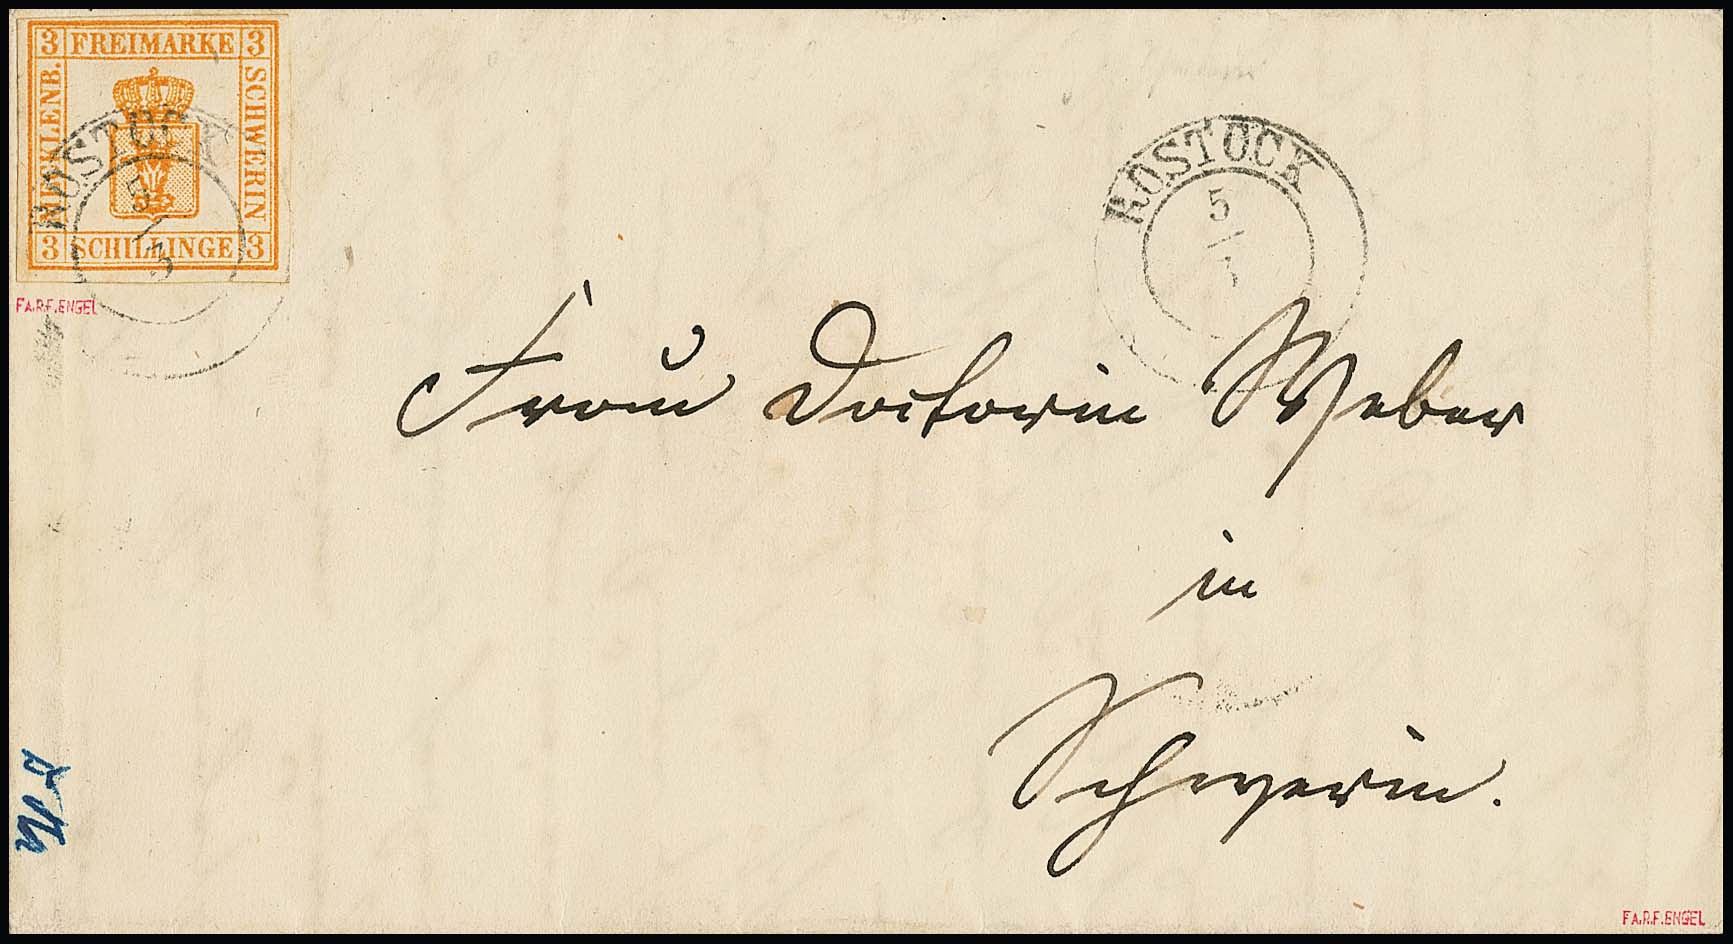 3 FREIMARKE 3
MECKLENB.
SCHWERIN
3 SCHILLINGE 3
ROSTOCK
5/3
FA.R.F.ENGEL
ROSTOCK
5/3
Frau Doctorin Weber
in
Schwerin.
FA.R.F.ENGEL